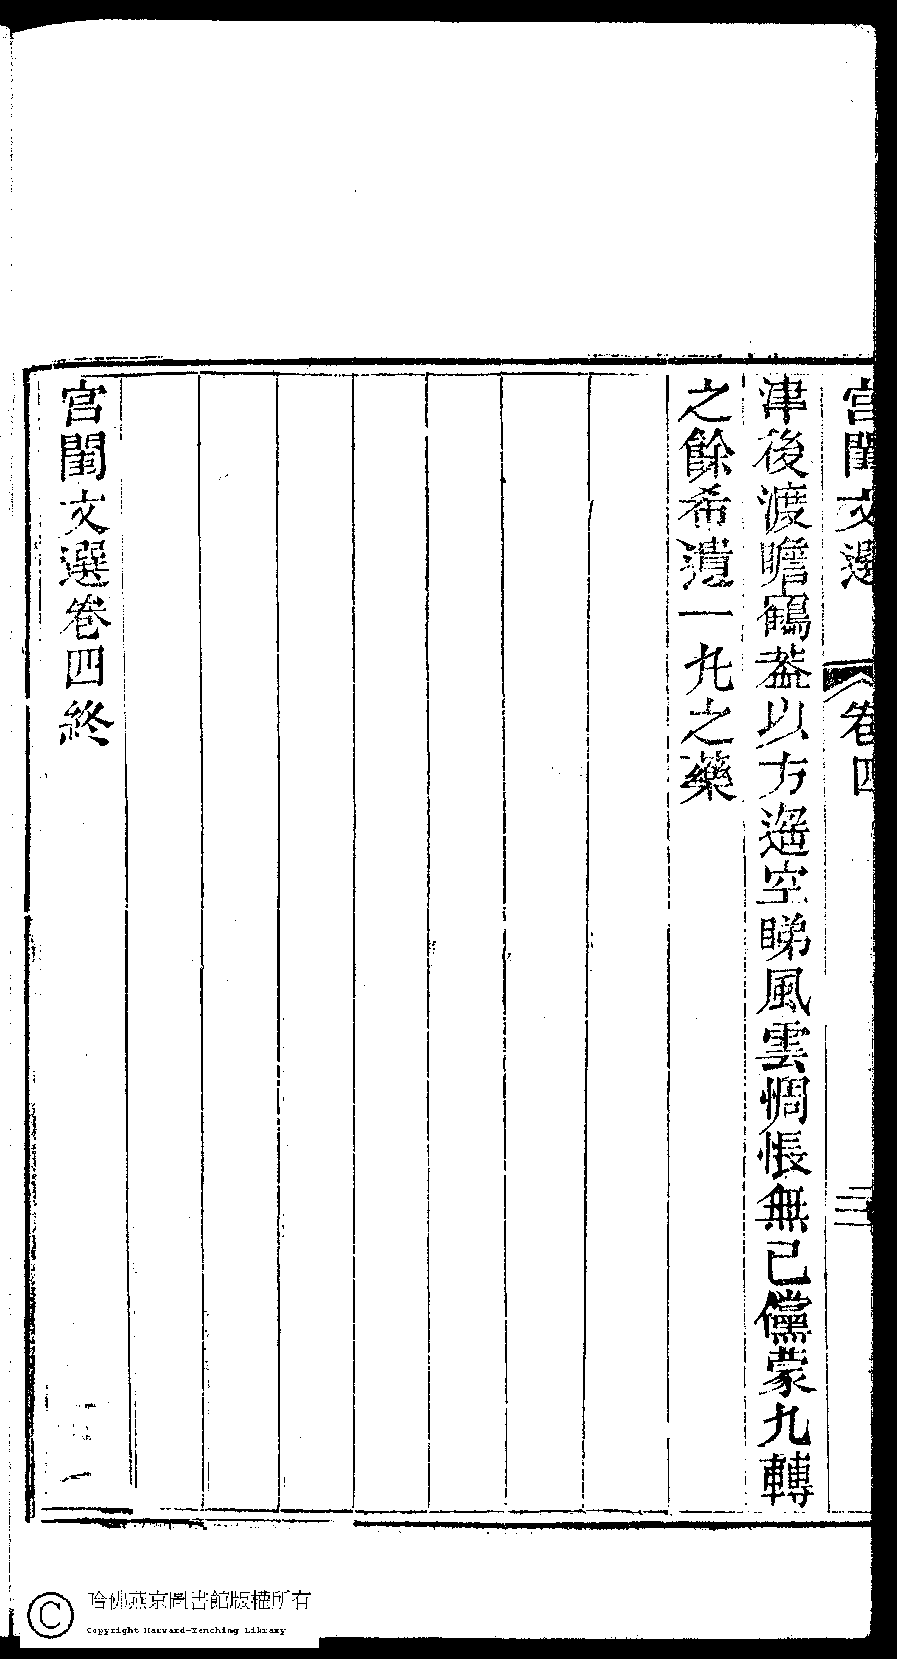 宫閨文選
卷四
三
津後渡瞻鶴葢以方遥空睇風雲惆悵無已儻蒙九轉
之餘希遺一九之藥
宫閨文選卷四終
哈佛燕京圖書館版權所有
Copyright Harvard-Yenching Library